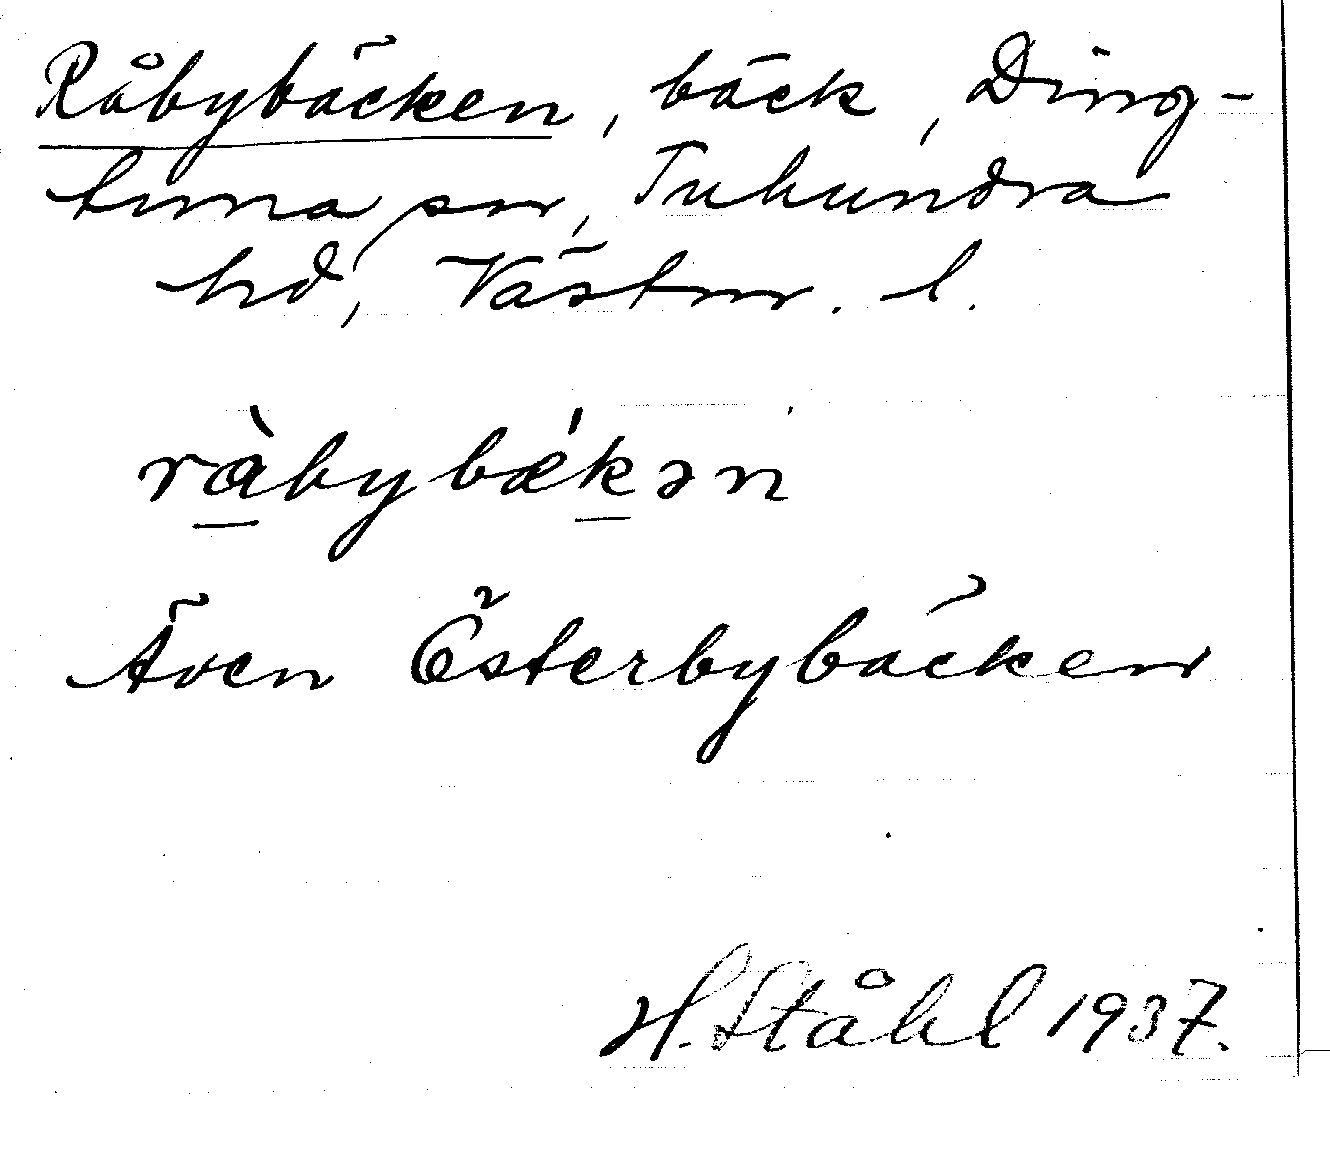 Råbybäcken, bäck, Ding-
tuna sn, Tuhundra
hd, Västm. l.
ràbybǽkən
Även Österbybäcken
H. Ståhl 1937.